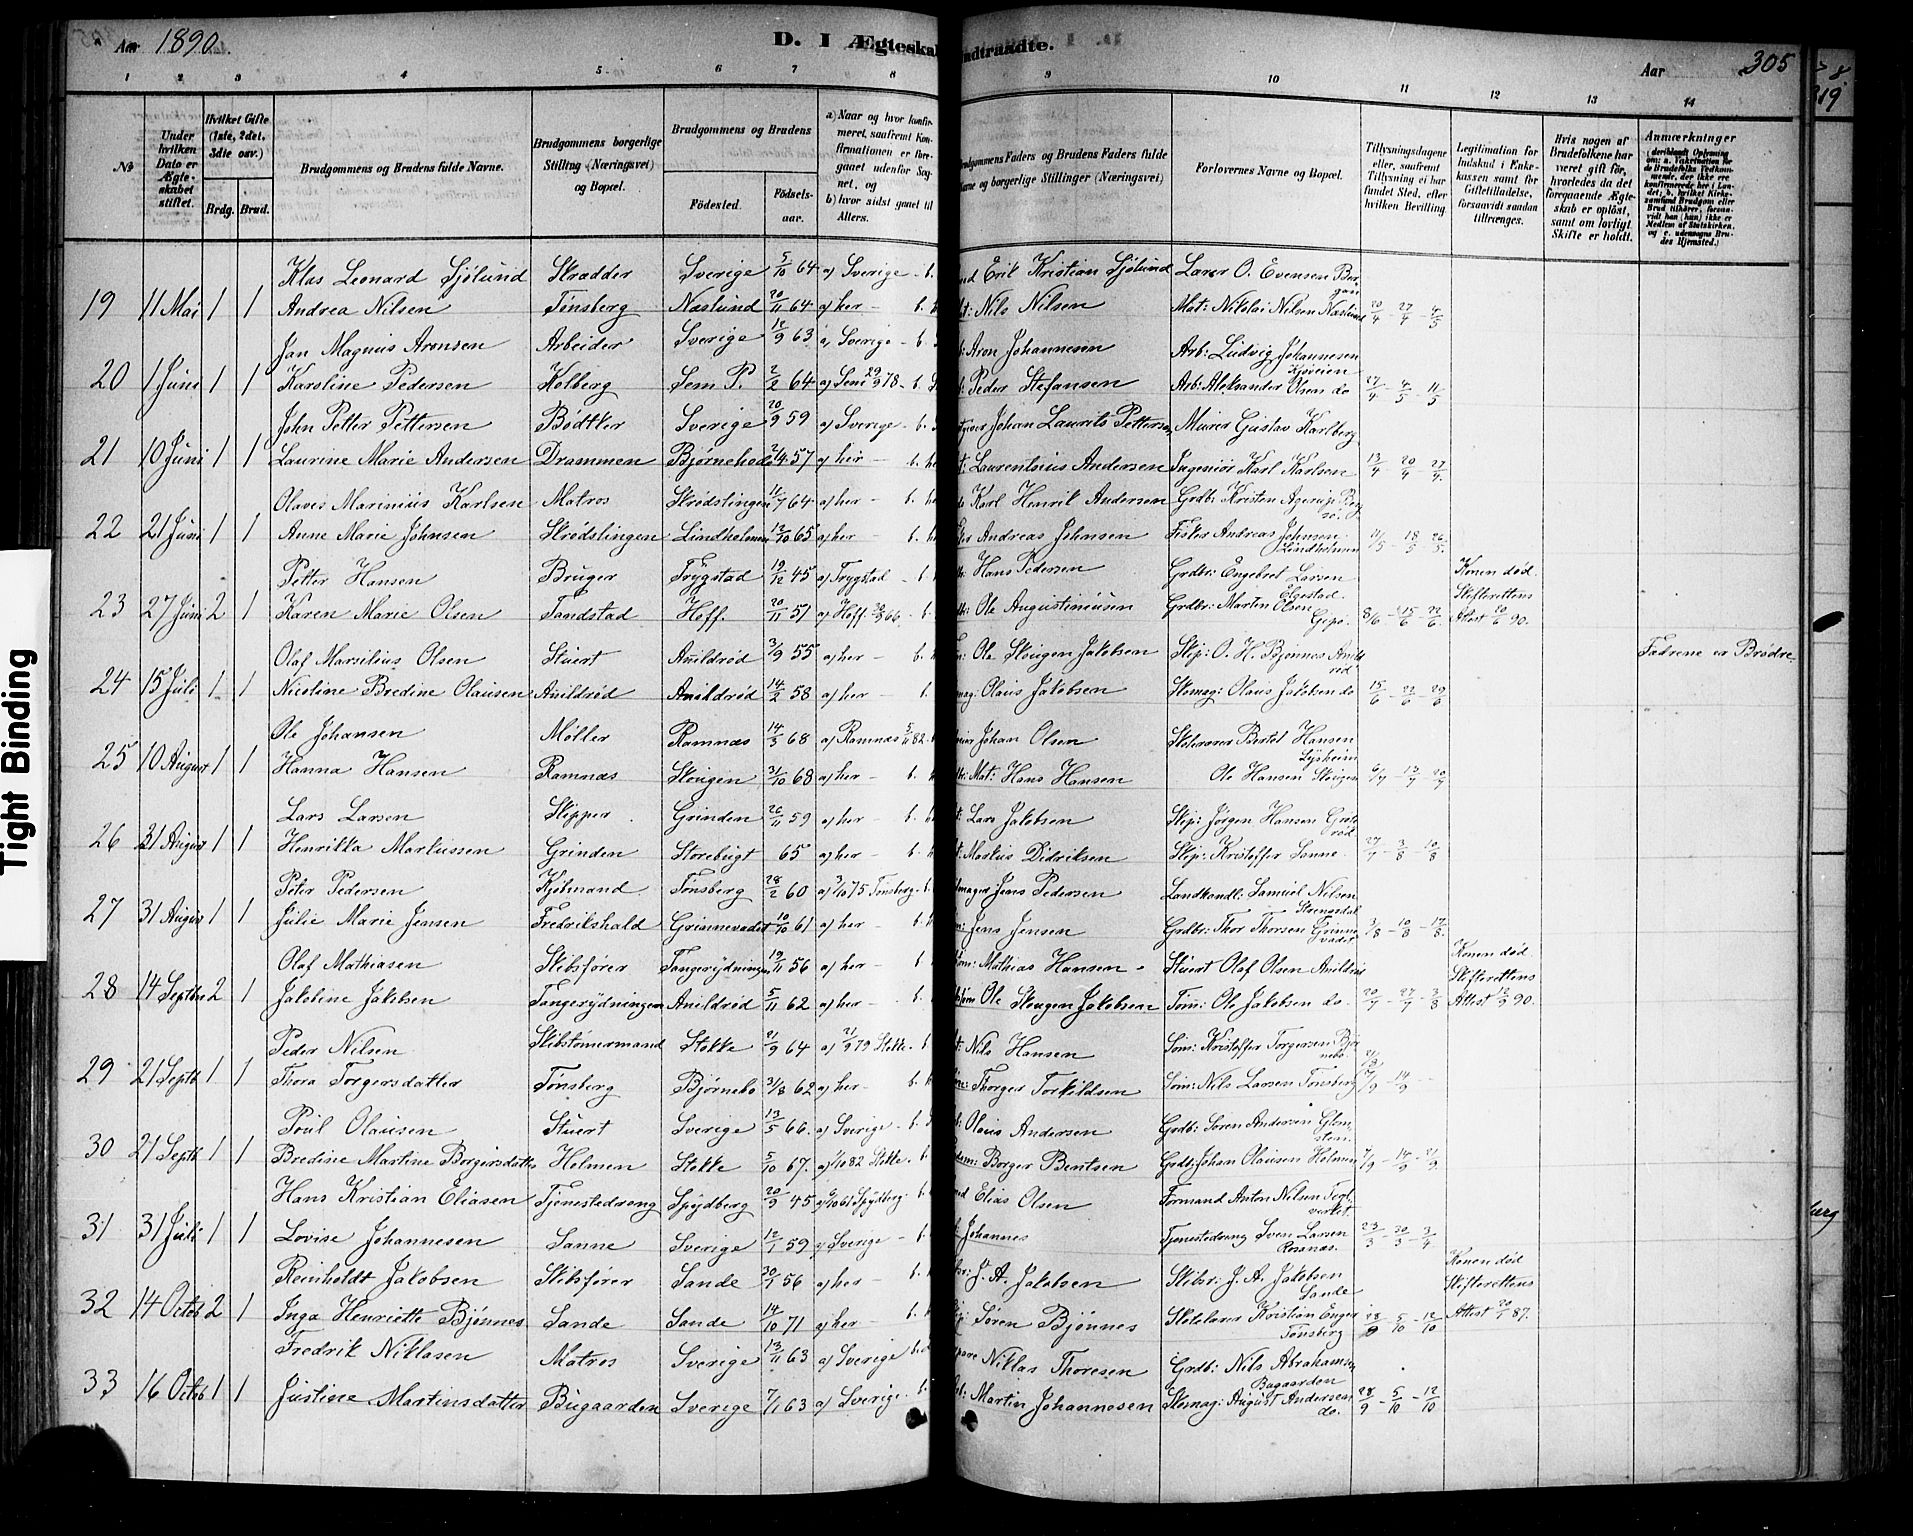 Aar 1890.
D. I Ægteskab Indtraadte.
Aar 305
1 2 3 4 5 6 7 8 9 10 11 12 13 14
№
Under hvilken Dato er Ægteskabet stiftet.
Hvilket Gifte (1ste, 2det, 3die osv.)
Brdg. Brud.
Brudgommens og Brudens fulde Navne.
Brudgommens borgerlige Stilling (Næringsvei) og Bopæl.
Brudgommens og Brudens
Fødested. Fødselsaar.
a) Naar og hvor konfirmeret, saafremt Konfirmationen er foregaaet udenfor Sognet, og
b) hvor sidst gaaet til Alters.
Brudgommens Faders og Brudens Faders fulde Navne og borgerlige Stillinger (Næringsvei)
Forlovernes Navne og Bopæl.
Tillysningsdagene eller, saafremt Tillysning ei har fundet Sted, efter hvilken Bevilling
Legitimation for Indskud i Enkekassen samt for Giftetilladelse, forsaavidt saadan tiltrænges.
Hvis nogen af Brudefolkene har været gift før, hvorledes da det foregaaende Ægteskab er opløst, samt om lovligt Skifte er holdt.
Anmærkninger
Klas Leonard Sjölund Skrædder Sverige 5/10 64 a) Sverige - b. Erik Kristian Sjölund Lærer O. Evensen
19 11 Mai 1 1 Andrea Nilsen Tönsberg Næslund 20/11 64 a) her - b. Nils Nilsen Mat: Nikolai Nilsen Næslund 20/4 - 27/4 - 4/5
Jan Magnus Aronsen Arbeider Sverige 12/9 63 a) Sverige - b. Aron Johannesen Arb: Ludvig Johannesen
20 1 Juni 1 1 Karoline Pedersen Kolberg Sem P. 2/2 64 a) Sem 29/9 78 - b. Peder Stefansen Arb: Aleksander Olsen do 27/4 - 4/5 - 11/5
John Petter Pettersen Bödtker Sverige 20/9 59 a) Sverige - b. Johan Laurits Pettersen Murer Gustav Karlberg
21 10 Juni 1 1 Laurine Marie Andersen Drammen 2/4 57 a) her - b. Laurentsius Andersen Ingeniör Karl Karlsen 13/4 - 20/4 - 27/4
Olaves Marinius Karlsen Matros Skrödslingen 64 a) her - b. Karl Henrik Andersen Grdb: Kristen
22 21 Juni 1 1 Anne Marie Johnsen Skrödslingen Lindholmen 65 a) her - b. Andreas Johnsen Fisker Andreas Johnsen Lindholmen 11/5 - 18/5 - 26/5
Petter Hansen Bruger Trygstad 19/12 45 a) Trygstad - b. Hans Pedersen Grdbr: Engebret Larsen Konen död.
23 27 Juni 2 1 Karen Marie Olsen Tandstad Hoff. 20/11 51 a) Hoff. 66 - b. Ole Augustinusen Grdbr: Martin Olsen Gipö. 8/6 - 15/6 - 22/6 Skifterettens Attest 10/6 90.
Olaf Marselius Olsen Stuert Anildröd 3/9 55 a) her - b. Ole Skougen Jakobsen Skip: O. H. Bjönnes Anildröd Fædrene er Brödre
24 15 Juli 1 1 Nicoline Bredine Olausen Anildröd Anildröd 14/2 58 a) her - b. Olaus Jakobsen Skomag: Olaus Jakobsen do 15/6 - 22/6 - 29/6
Ole Johansen Möller Ramnæs 14/3 68 a) Ramnæs 5/11 82 - Johan Olsen Skolelærer Bertel Hansen
25 10 August 1 1 Hanna Hansen Ramnæs Skougen 3/10 68 a) her - b. Mat: Hans Hansen Ole Hansen Skougen 6/7 - 13/7 - 20/7
Lars Larsen Skipper Grinden 26/11 59 a) her - b. Lars Jakobsen Skip: Jörgen Hansen
26 31 August 1 1 Henrikka Markussen Grinden Storebugt 65 a) her - b. Markus Didriksen Skip: Kristoffer Sanne 27/7 - 3/8 - 10/8
Peter Pedersen Kjöbmand Tönsberg 28/2 60 a) 3/10 75 Tönsberg - b. Jens Pedersen Landhandl: Samuel Nilsen
27 31 August 1 1 Julie Marie Jensen Fredrikshald Grinnevadet 10/10 61 a) her - b. Jens Jensen Grdbr: Thor Thorsen Grinnevadet 3/8 - 10/8 - 17/8
Olaf Mathiasen Skibsförer Tangerydningen 19/11 56 a) her - b. Mathias Hansen - Stuert Olaf Olsen Anildröd Konen död
28 14 Septbr 2 1 Jakobine Jakobsen Tangerydningen Anildröd 5/11 62 a) her - b. Ole Skougen Jakobsen Töm: Ole Jakobsen do - 20/7 - 27/7 - 3/8 Skifterettens Attest 12/3 90.
Peder Nilsen Skibstömermand Stokke 21/9 64 a) 21/9 79 Stokke - b. Nils Hansen Söm: Kristoffer Torgersen
29 21 Septb 1 1 Thora Torgersdatter Tönsberg Bjørnebo 3/8 62 a) her - b. Thorger Torkildsen Söm: Nils Larsen Tönsberg 7/9 - 14/9 -
Poul Olausen Stuert Sverige 13/5 66. a) Sverige - b. Olaus Andersen Grdb: Sören Andersen
30 21 Septb 1 1 Bredine Martine Borgersdatter Holmen Stokke 5/10 67. a) 1/10 82 Stokke. b. Borger Bentsen Grdb: Johan Olausen Holmen 7/9 - 14/9 - 21/9
Hans Kristian Eliasen Tjenestedreng Spydberg 20/9 45 61 Spydberg Elias Olsen Formand Anton Nilsen Teglverket.
31 31 Juli 1 1 Lovise Johannesen Sanne Sverige 12/1 59 a) Sverige - b. Johannes Tjenestedreng Sven Larsen Rosanæs. 23/3 - 30/3 - 3/4
Reinholdt Jakobsen Skibsförer Sande 20/1 56 a) her - b. J. A. Jakobsen Skibsr: J. A. Jakobsen Sande Konen död
32 14 Octob 2 1 Inga Henriette Bjönnes Sande Sande 14/10 71 a) her - b. Sören Bjönnes Skolelærer Kristian Enger Tönsberg 28/9 - 5/10 - 12/10 Skifterettens Attest 20/1 87.
Fredrik Niklasen Matros Sverige 13/11 63 a) Sverige b. Niklas Thoresen Grdb: Nils Abrahamsen Bugaarden
33 16 Octob 1 1 Justine Martinsdatter Bugaarden Sverige 7/1 63 a) Sverige - b. Martin Johannesen Skomag: August Andersen do. 28/9 - 5/10 - 12/10
Tight Binding